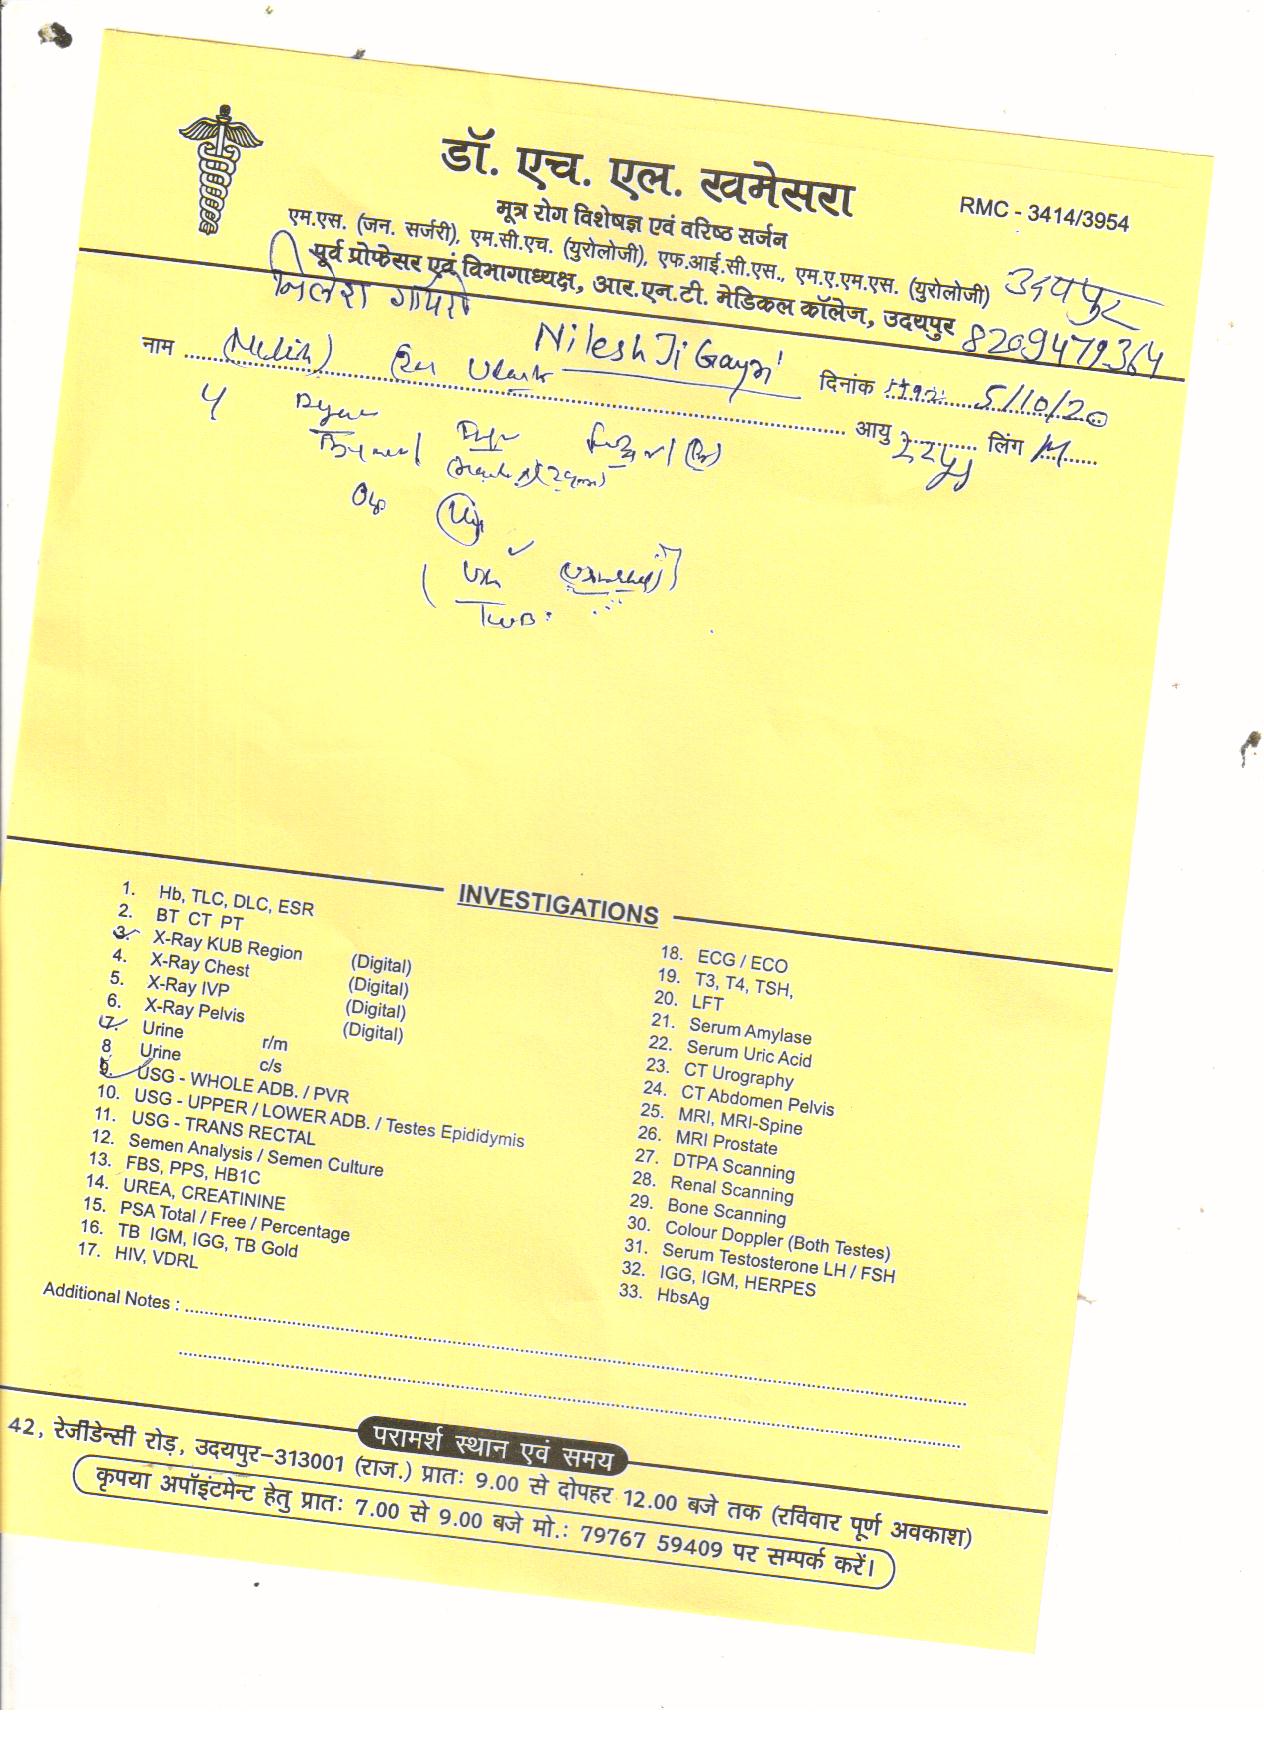 डॉ. एच. एल. खमेसरा
RMC - 3414/3954
मूत्र रोग विशेषज्ञ एवं वरिष्ठ सर्जन
एम.एस. (जन. सर्जरी), एम.सी.एच. (युरोलोजी), एफ.आई.सी.एस., एम.ए.एम.एस. (युरोलोजी)
पूर्व प्रोफेसर एवं विभागाध्यक्ष, आर.एन.टी. मेडिकल कॉलेज, उदयपुर
उदयपुर
8209479364
निलेश
Nilesh Ji
नाम
दिनांक 5/10/20
आयु लिंग M
INVESTIGATIONS
1. Hb, TLC, DLC, ESR
2. BT CT PT
3. X-Ray KUB Region (Digital)
4. X-Ray Chest (Digital)
5. X-Ray IVP (Digital)
6. X-Ray Pelvis (Digital)
7. Urine r/m
8 Urine c/s
9. USG - WHOLE ADB. / PVR
10. USG - UPPER / LOWER ADB. / Testes Epididymis
11. USG - TRANS RECTAL
12. Semen Analysis / Semen Culture
13. FBS, PPS, HB1C
14. UREA, CREATININE
15. PSA Total / Free / Percentage
16. TB IGM, IGG, TB Gold
17. HIV, VDRL
18. ECG / ECO
19. T3, T4, TSH,
20. LFT
21. Serum Amylase
22. Serum Uric Acid
23. CT Urography
24. CT Abdomen Pelvis
25. MRI, MRI-Spine
26. MRI Prostate
27. DTPA Scanning
28. Renal Scanning
29. Bone Scanning
30. Colour Doppler (Both Testes)
31. Serum Testosterone LH / FSH
32. IGG, IGM, HERPES
33. HbsAg
Additional Notes :
परामर्श स्थान एवं समय
42, रेजीडेन्सी रोड़, उदयपुर-313001 (राज.) प्रातः 9.00 से दोपहर 12.00 बजे तक (रविवार पूर्ण अवकाश)
कृपया अपॉइंटमेन्ट हेतु प्रातः 7.00 से 9.00 बजे मो.: 79767 59409 पर सम्पर्क करें।